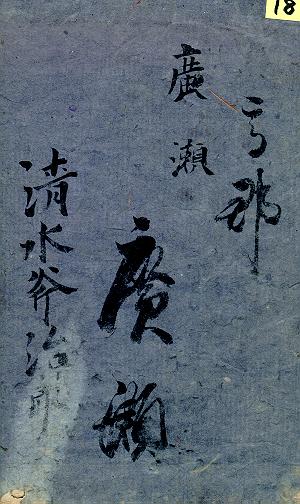 18
廣瀬
廣瀬
清水斧治郎